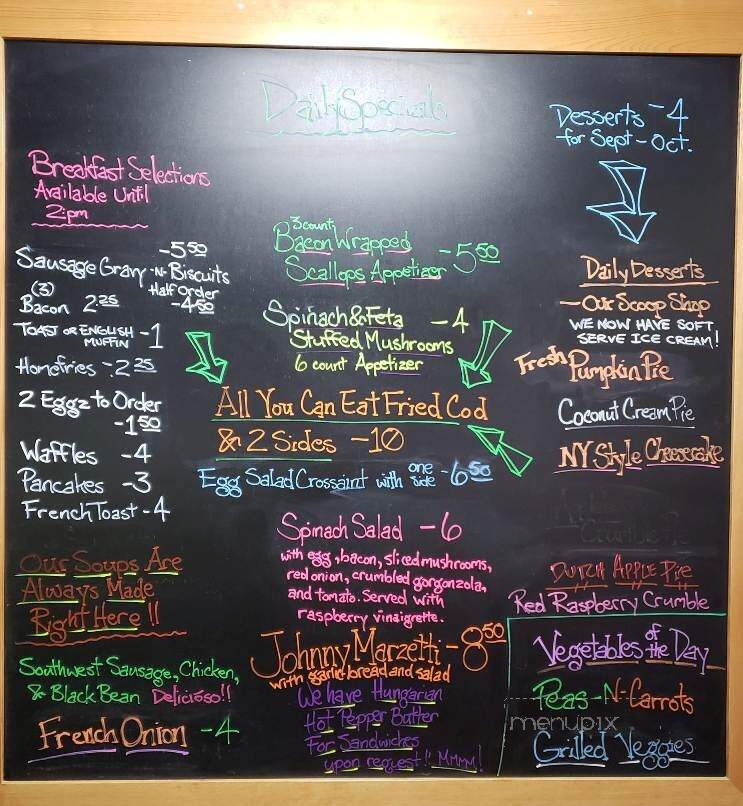 Daily Specials
Breakfast Selections
Available Until
2:pm
Sausage Gravy -N- Biscuits -5.50
Half Order
-4.50
(3)
Bacon 2.25
Toast or English Muffin -1
Homefries -2.25
2 Eggz to Order
-1.50
Waffles -4
Pancakes -3
French Toast -4
Our Soups Are
Always Made
Right Here !!
Southwest Sausage, Chicken,
& Black Bean Delicioso!!
French Onion -4
3 count
Bacon Wrapped
Scallops Appetizer -5.50
Spinach & Feta -4
Stuffed Mushrooms
6 count Appetizer
All You Can Eat Fried Cod
& 2 Sides -10
Egg Salad Crossaint with one side -6.50
Spinach Salad -6
with egg, bacon, sliced mushrooms,
red onion, crumbled gorgonzola,
and tomato. Served with
raspberry vinaigrette.
Johnny Marzetti -8.50
with garlic bread and salad
We have Hungarian
Hot Pepper Butter
For Sandwiches
upon request!! MMMM!
Desserts -4
for Sept-Oct.
Daily Desserts
-Our Scoop Shop
WE NOW HAVE SOFT
SERVE ICE CREAM!
Fresh Pumpkin Pie
Coconut Cream Pie
NY Style Cheesecake
Crumble Pie
Dutch Apple Pie
Red Raspberry Crumble
Vegetables of the Day
Peas -N- Carrots
Grilled Veggies
menupix